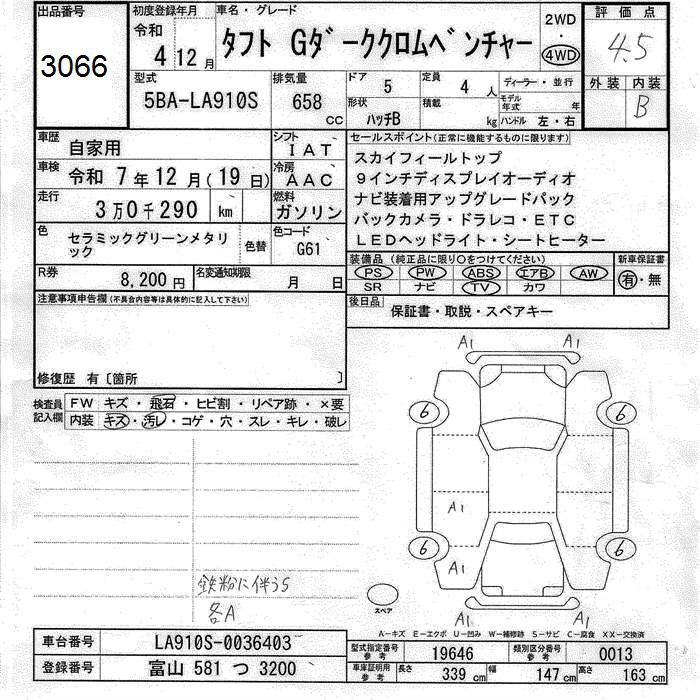 出品番号
3066
初度登録年月
令和
4 12 月
車名・グレード
タフト Gダーククロムベンチャー
2WD
・
4WD
評価点
4.5
外装 内装
B
型式
5BA-LA910S
排気量
658 cc
ドア 5
定員 4 人
形状 ハッチB
積載 kg
ディーラー・並行
モデル年式 年
ハンドル 左・右
車歴 自家用
シフト IAT
車検 令和 7 年 12 月(19 日)
冷房 AAC
走行 3 万 0 千 290 km
燃料 ガソリン
色 セラミックグリーンメタリック
色替
色コード G61
R券 8,200 円
名変通知期限 月 日
セールスポイント(正常に機能するものに限ります)
スカイフィールトップ
9インチディスプレイオーディオ
ナビ装着用アップグレードパック
バックカメラ・ドラレコ・ETC
LEDヘッドライト・シートヒーター
装備品(純正品に限り○をつけてください)
新車保証書
PS PW ABS エアB AW
SR ナビ TV カワ
有・無
後日品 保証書・取説・スペアキー
注意事項申告欄(不具合内容等は具体的に記入して下さい)
修復歴 有〔箇所 〕
検査員記入欄
FW キズ・飛石・ヒビ割・リペア跡・×要
内装 キズ・汚レ・コゲ・穴・スレ・キレ・破レ
A1 A1
6 6
A1
6 6
A1
A1 A1
スペア
鉄粉に伴うS
各A
A-キズ E-エクボ U-凹み W-補修跡 S-サビ C-腐食 XX-交換済
車台番号 LA910S-0036403
登録番号 富山 581 つ 3200
型式指定番号 参考 19646
類別区分番号 参考 0013
車庫証明用 参考 長さ 339 cm 幅 147 cm 高さ 163 cm